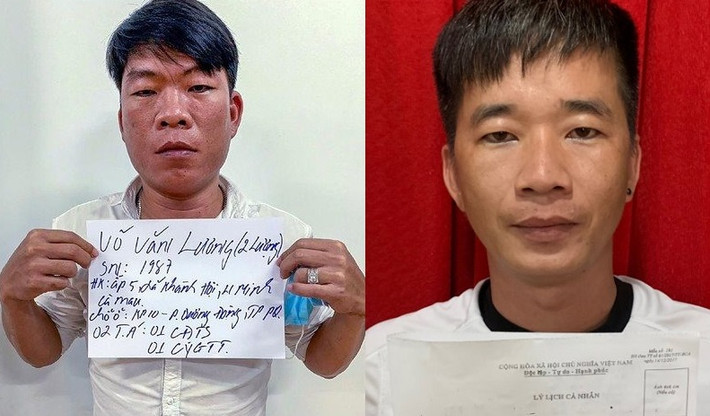 VÕ VĂN LƯỢNG (2 Lượng)
SN: 1987
HK: ấp 5, xã Khánh Hội, H U Minh
Cà mau.
chỗ ở: KP10 - P. Dương Đông, TP PQ.
02 T.A: 01 CATS
01 CYGTT.
CỘNG HÒA XÃ HỘI CHỦ NGHĨA VIỆT NAM
Độc lập - Tự do - Hạnh phúc
LÝ LỊCH CÁ NHÂN